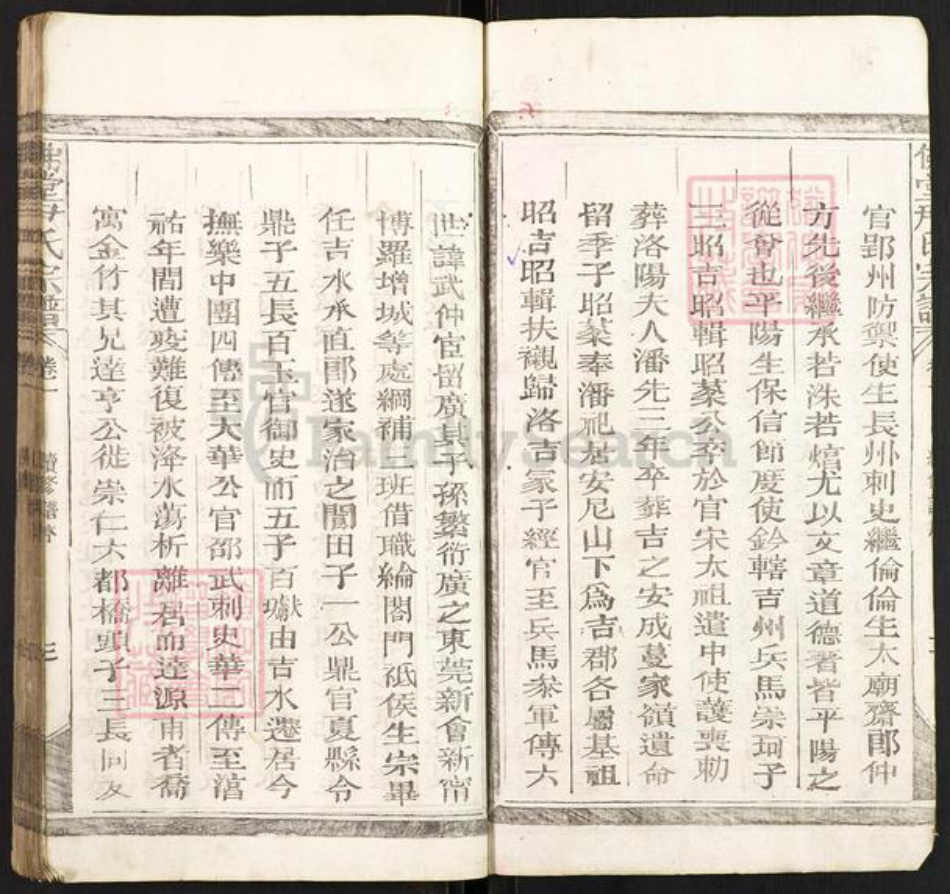 官郢州防禦使生長州刺史繼倫倫生太廟齋郎仲
方先後繼承若洙若熺尤以文章道德著皆平陽之
從會也平陽生保信節度使鈐轄吉州兵馬崇珂子
三昭吉昭輯昭菜公卒於官宋太祖遣中使護喪勅
葬洛陽夫人潘先三年卒葬吉之安成蔓家嶺遺命
留季子昭菜奉潘祀居安尼山下為吉郡各屬基祖
昭吉昭輯扶櫬歸洛吉家子經官至兵馬叅軍傳六
世諱武仲宦留廣其子孫繁衍廣之東莞新會新甯
博羅增城等處綱補三班借職綸閤門祗侯生宗畢
任吉水承直郎遂家治之闇田子一公鼎官夏縣令
鼎子五長百玉官御史而五子百獻由吉水遷居今
撫樂中團四傳至大華公官邵武刺史華二傳至
祐年間遭变難復被洚水蕩析離居而達源甫者喬
寓金竹其兄達亨公徙崇仁六都橋頭子三長同友
佛堂尹氏宗譜
卷一
續修譜
FamilySearch